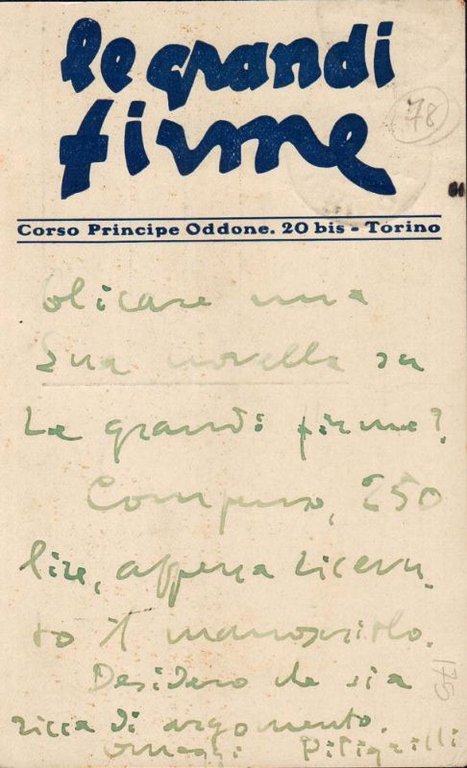 le grandi
firme
78
Corso Principe Oddone, 20 bis - Torino
blicare una
Sua novella su
Le grandi firme?
Compenso, 250
lire, appena ricevu-
to il manoscritto.
Desidero che sia
ricca di argomento.
Omaggi Pitigrilli
175